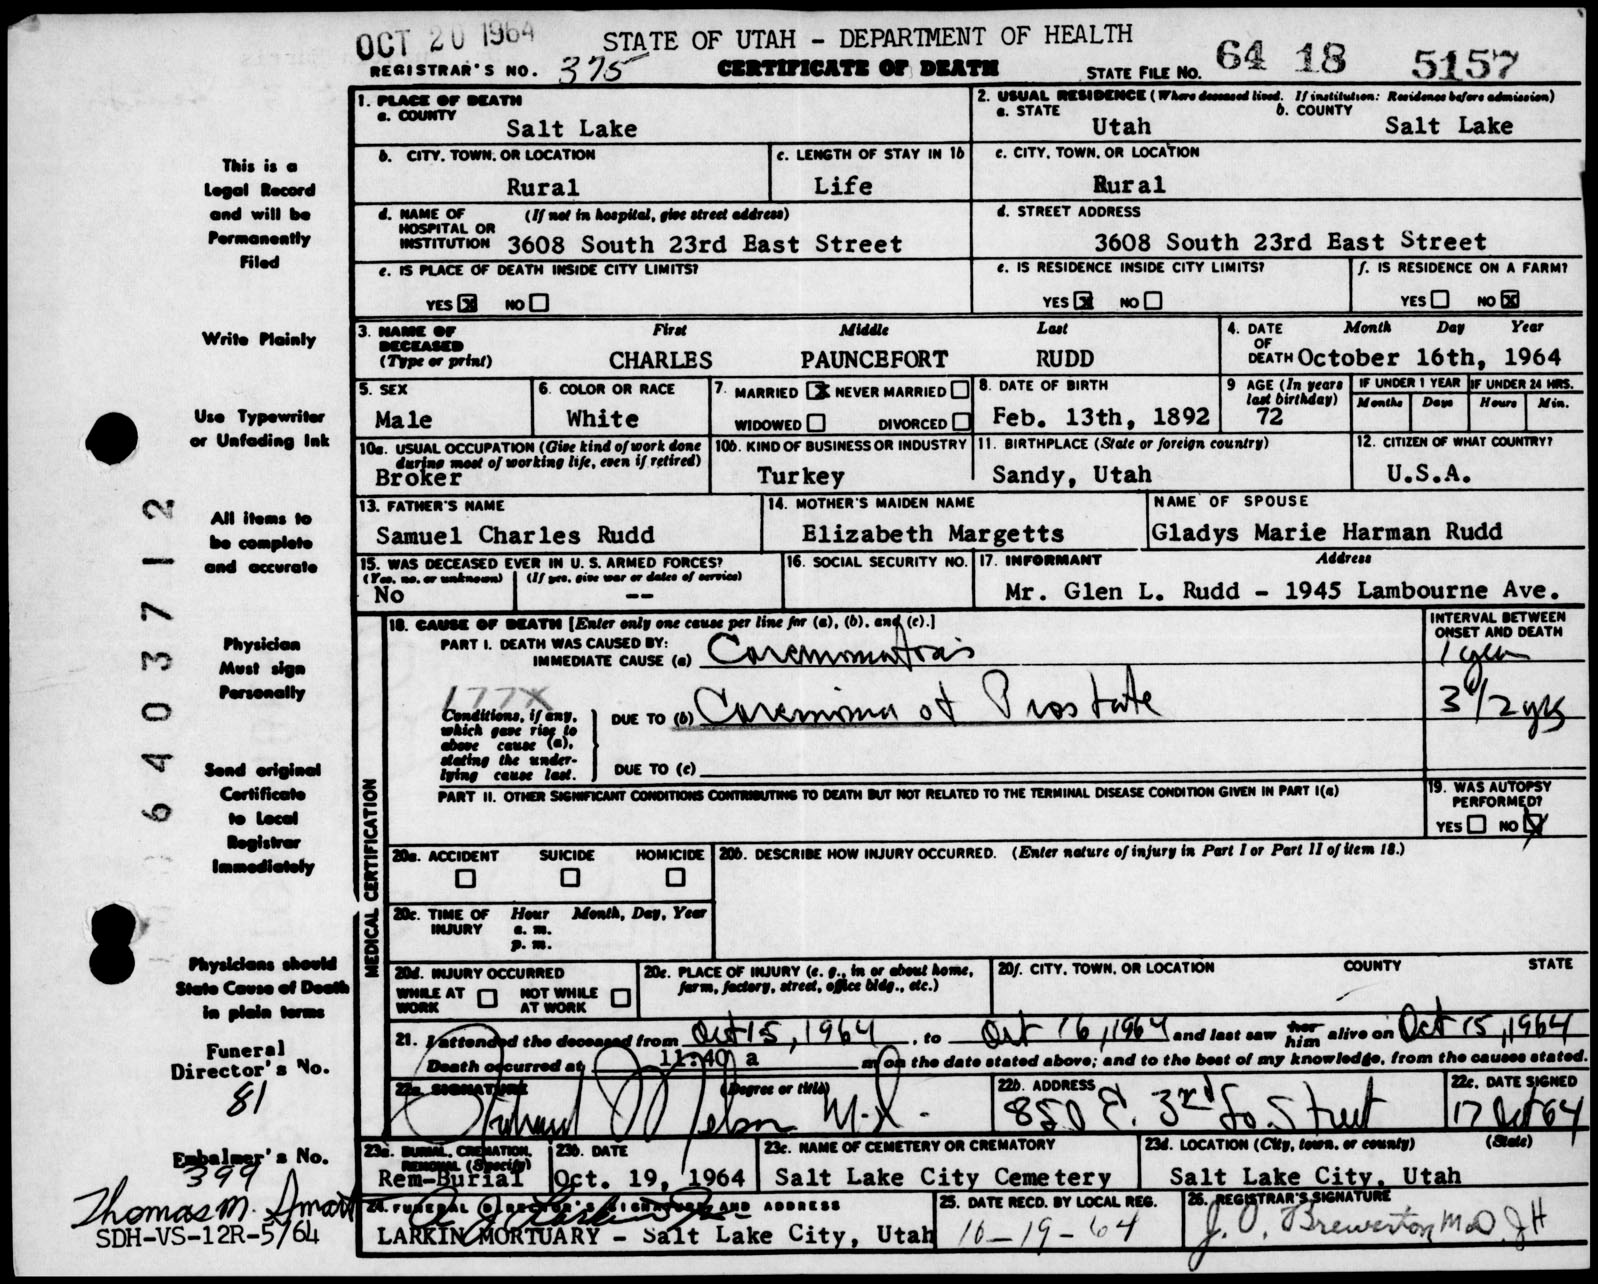 OCT 20 1964
STATE OF UTAH - DEPARTMENT OF HEALTH
REGISTRAR'S NO. 375
CERTIFICATE OF DEATH
STATE FILE NO. 64 18 5157
1. PLACE OF DEATH
a. COUNTY
Salt Lake
2. USUAL RESIDENCE (Where deceased lived. If institution: Residence before admission)
a. STATE
Utah
b. COUNTY
Salt Lake
b. CITY, TOWN, OR LOCATION
Rural
c. LENGTH OF STAY IN 1b
Life
c. CITY, TOWN, OR LOCATION
Rural
d. NAME OF HOSPITAL OR INSTITUTION (If not in hospital, give street address)
3608 South 23rd East Street
d. STREET ADDRESS
3608 South 23rd East Street
e. IS PLACE OF DEATH INSIDE CITY LIMITS?
YES X NO
e. IS RESIDENCE INSIDE CITY LIMITS?
YES X NO
f. IS RESIDENCE ON A FARM?
YES NO X
3. NAME OF DECEASED (Type or print)
First Middle Last
CHARLES PAUNCEFORT RUDD
4. DATE OF DEATH Month Day Year
October 16th, 1964
5. SEX
Male
6. COLOR OR RACE
White
7. MARRIED X NEVER MARRIED
WIDOWED DIVORCED
8. DATE OF BIRTH
Feb. 13th, 1892
9 AGE (In years last birthday)
72
IF UNDER 1 YEAR
Months Days
IF UNDER 24 HRS.
Hours Min.
10a. USUAL OCCUPATION (Give kind of work done during most of working life, even if retired)
Broker
10b. KIND OF BUSINESS OR INDUSTRY
Turkey
11. BIRTHPLACE (State or foreign country)
Sandy, Utah
12. CITIZEN OF WHAT COUNTRY?
U.S.A.
13. FATHER'S NAME
Samuel Charles Rudd
14. MOTHER'S MAIDEN NAME
Elizabeth Margetts
NAME OF SPOUSE
Gladys Marie Harman Rudd
15. WAS DECEASED EVER IN U. S. ARMED FORCES?
(Yes, no, or unknown) (If yes, give war or dates of service)
No --
16. SOCIAL SECURITY NO.
17. INFORMANT Address
Mr. Glen L. Rudd - 1945 Lambourne Ave.
MEDICAL CERTIFICATION
18. CAUSE OF DEATH [Enter only one cause per line for (a), (b), and (c).]
INTERVAL BETWEEN ONSET AND DEATH
PART I. DEATH WAS CAUSED BY:
IMMEDIATE CAUSE (a) Carcinomatosis
1 year
177X
Conditions, if any, which gave rise to above cause (a), stating the underlying cause last.
DUE TO (b) Carcinoma of Prostate
3 1/2 yrs
DUE TO (c)
PART II. OTHER SIGNIFICANT CONDITIONS CONTRIBUTING TO DEATH BUT NOT RELATED TO THE TERMINAL DISEASE CONDITION GIVEN IN PART I(a)
19. WAS AUTOPSY PERFORMED?
YES NO X
20a. ACCIDENT SUICIDE HOMICIDE
20b. DESCRIBE HOW INJURY OCCURRED. (Enter nature of injury in Part I or Part II of item 18.)
20c. TIME OF INJURY Hour Month, Day, Year
a. m.
p. m.
20d. INJURY OCCURRED
WHILE AT WORK NOT WHILE AT WORK
20e. PLACE OF INJURY (e. g., in or about home, farm, factory, street, office bldg., etc.)
20f. CITY, TOWN, OR LOCATION COUNTY STATE
21. I attended the deceased from Oct 15, 1964, to Oct 16, 1964 and last saw her him alive on Oct 15, 1964
Death occurred at 11:40 a m on the date stated above; and to the best of my knowledge, from the causes stated.
22a. SIGNATURE (Degree or title)
Richard W Nelson M.D.
22b. ADDRESS
850 E. 3rd So. Street
22c. DATE SIGNED
17 Oct 64
23a. BURIAL, CREMATION, REMOVAL (Specify)
Rem-Burial
23b. DATE
Oct. 19, 1964
23c. NAME OF CEMETERY OR CREMATORY
Salt Lake City Cemetery
23d. LOCATION (City, town, or county) (State)
Salt Lake City, Utah
24. FUNERAL DIRECTOR'S SIGNATURE AND ADDRESS
LARKIN MORTUARY - Salt Lake City, Utah
25. DATE RECD. BY LOCAL REG.
10-19-64
26. REGISTRAR'S SIGNATURE
J. O. Brewerton M.D. JH
This is a
Legal Record
and will be
Permanently
Filed
Write Plainly
Use Typewriter
or Unfading Ink
All items to
be complete
and accurate
Physician
Must sign
Personally
Send original
Certificate
to Local
Registrar
Immediately
Physicians should
State Cause of Death
in plain terms
Funeral
Director's No.
81
Embalmer's No.
399
Thomas M. Smart
SDH-VS-12R-5/64
64 0 3712